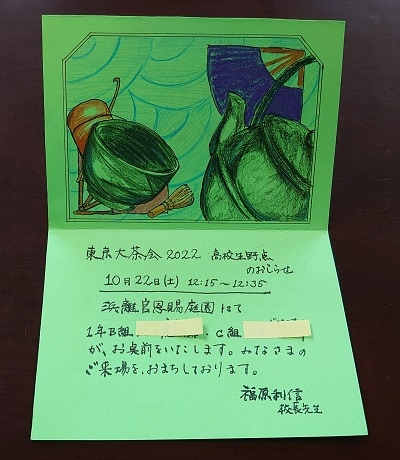 東京大茶会2022 高校生野点
のおしらせ
10月22日(土) 12:15〜12:35
浜離宮恩賜庭園にて
1年B組 ・C組
が、お点前をいたします。みなさまの
ご来場を、おまちしております。
福原利信
校長先生